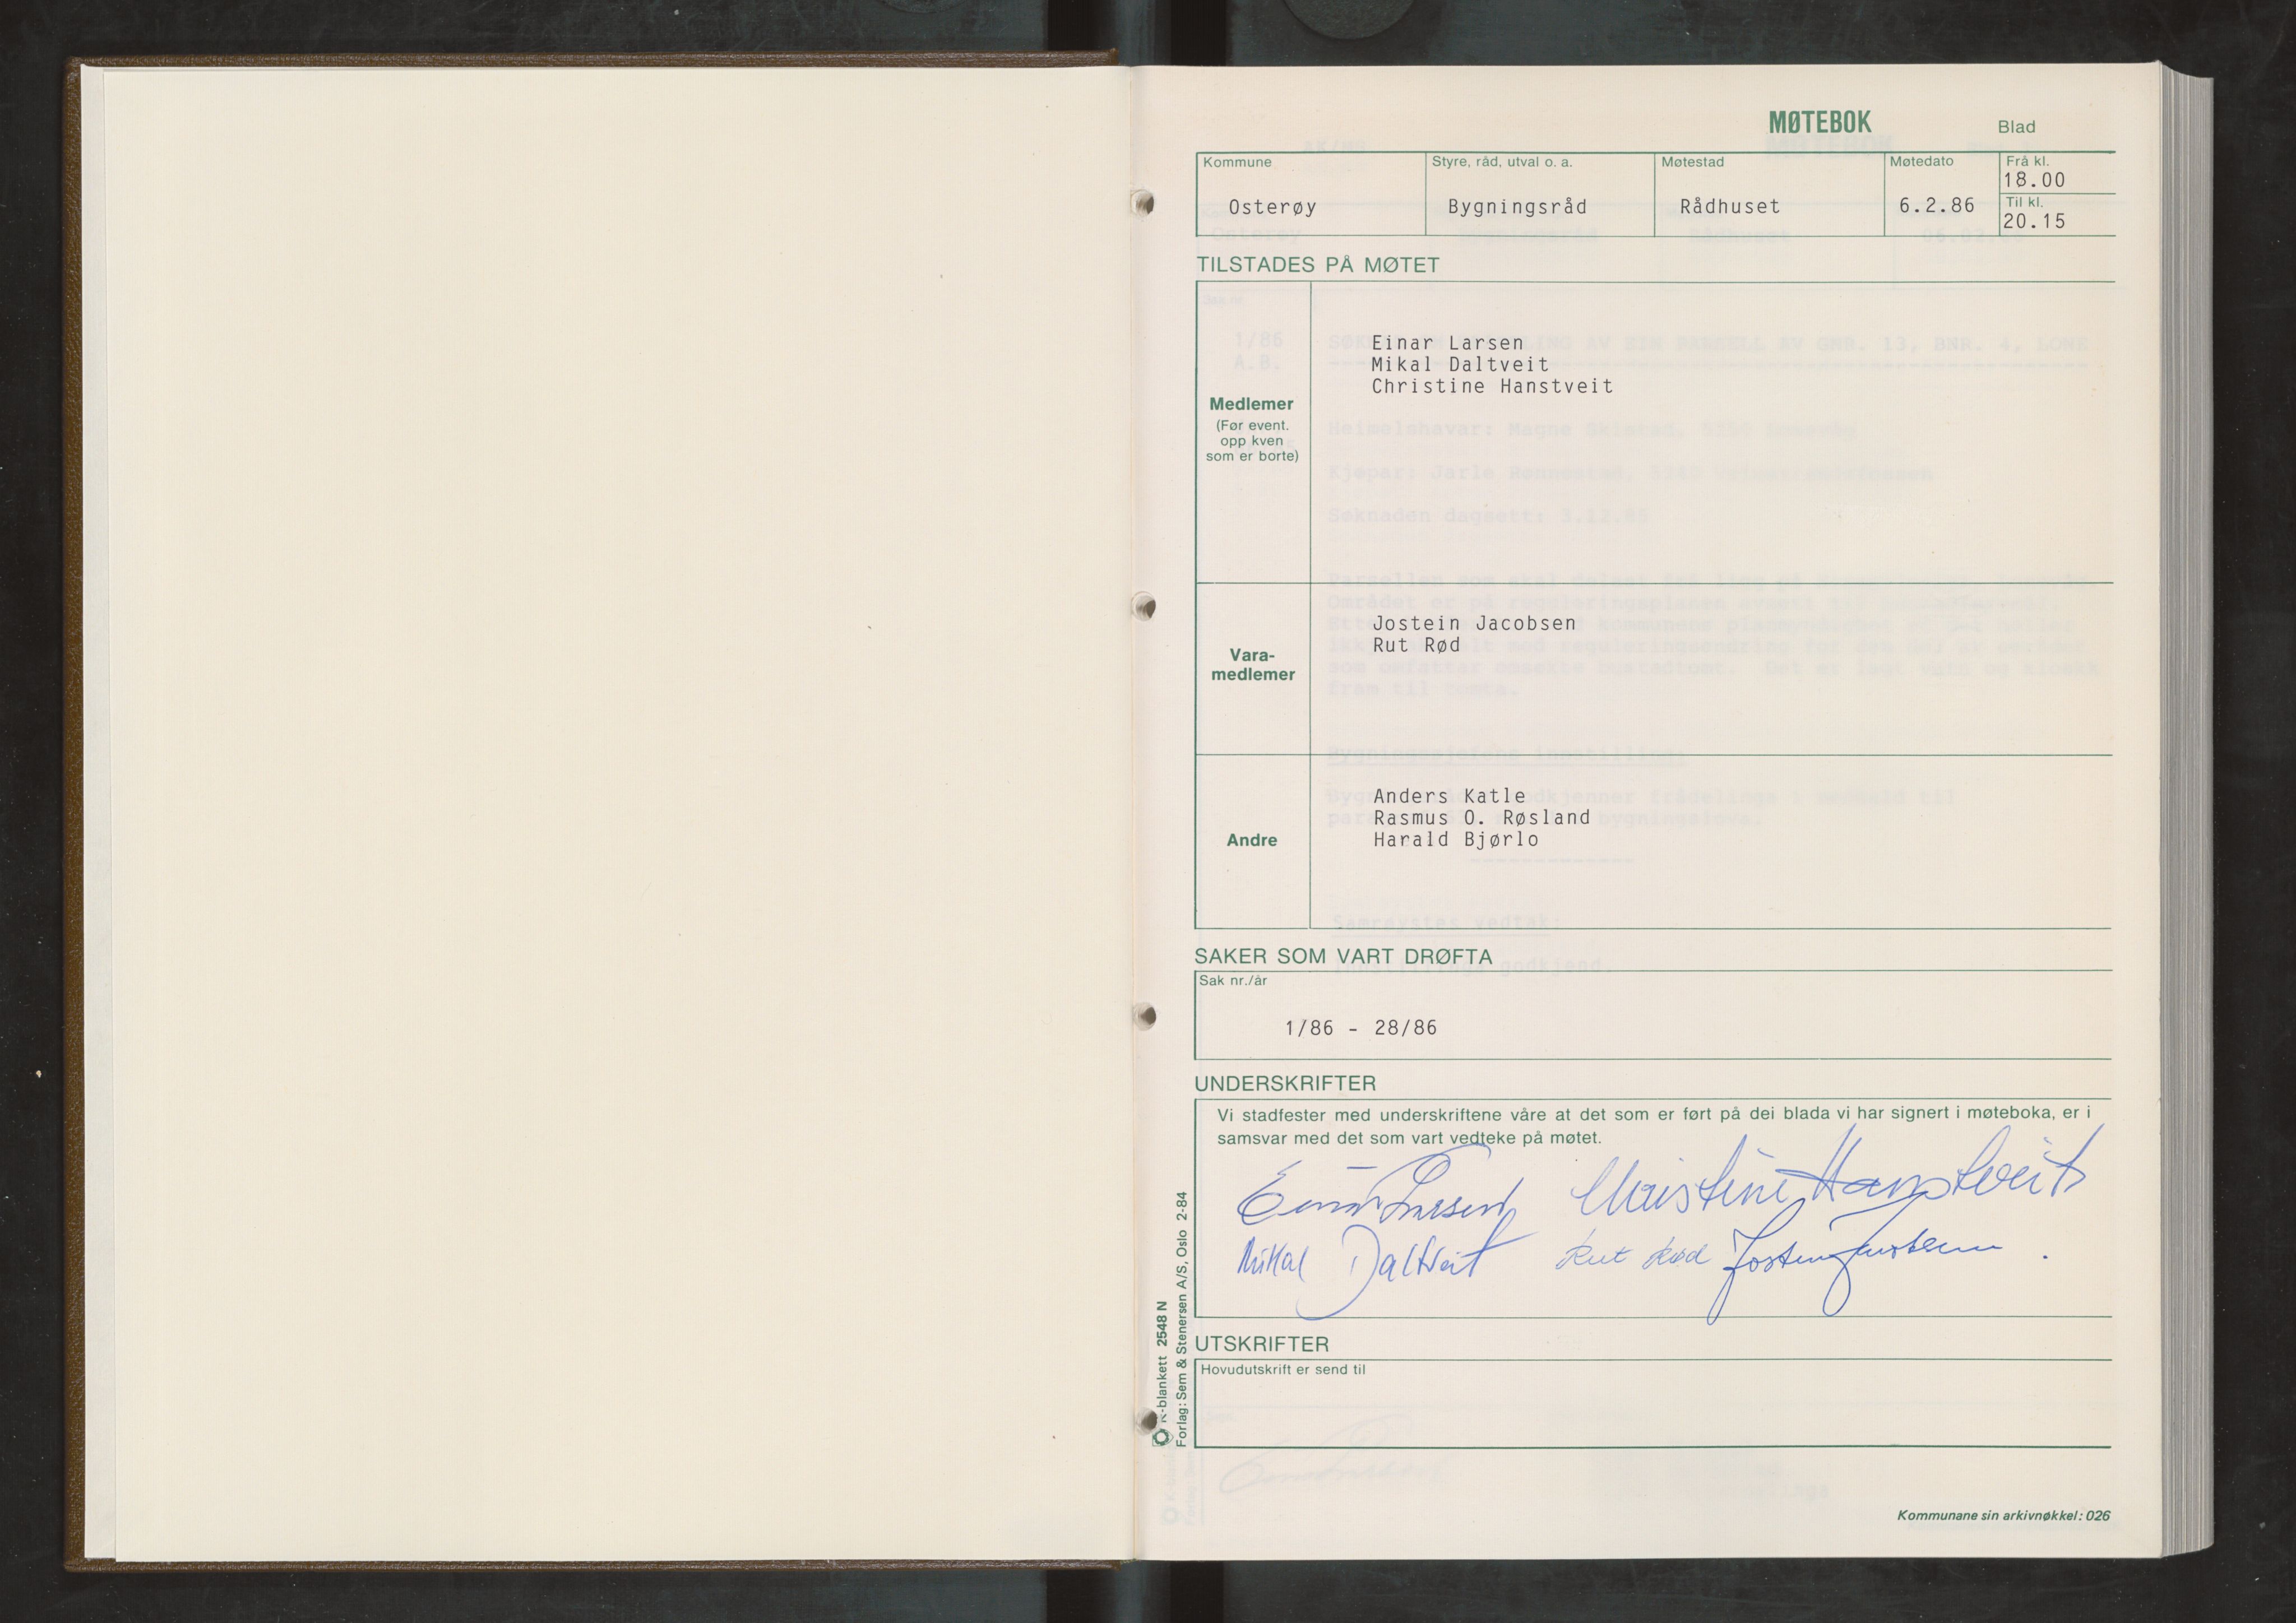 MØTEBOK
Blad
Kommune
Osterøy
Styre, råd, utval o. a.
Bygningsråd
Møtestad
Rådhuset
Møtedato
6.2.86
Frå kl.
18.00
Til kl.
20.15
TILSTADES PÅ MØTET
Medlemer
(Før event.
opp kven
som er borte)
Einar Larsen
Mikal Daltveit
Christine Hanstveit
Vara-
medlemer
Jostein Jacobsen
Rut Rød
Andre
Anders Katle
Rasmus O. Røsland
Harald Bjørlo
SAKER SOM VART DRØFTA
Sak nr./år
1/86 - 28/86
UNDERSKRIFTER
Vi stadfester med underskriftene våre at det som er ført på dei blada vi har signert i møteboka, er i
samsvar med det som vart vedteke på møtet.
Einar Larsen Christine Hanstveit
Mikal Daltveit Rut Rød Jostein Jacobsen
UTSKRIFTER
Hovudutskrift er send til
K-blankett 2548 N
Forlag: Sem & Stenersen A/S, Oslo 2-84
Kommunane sin arkivnøkkel: 026